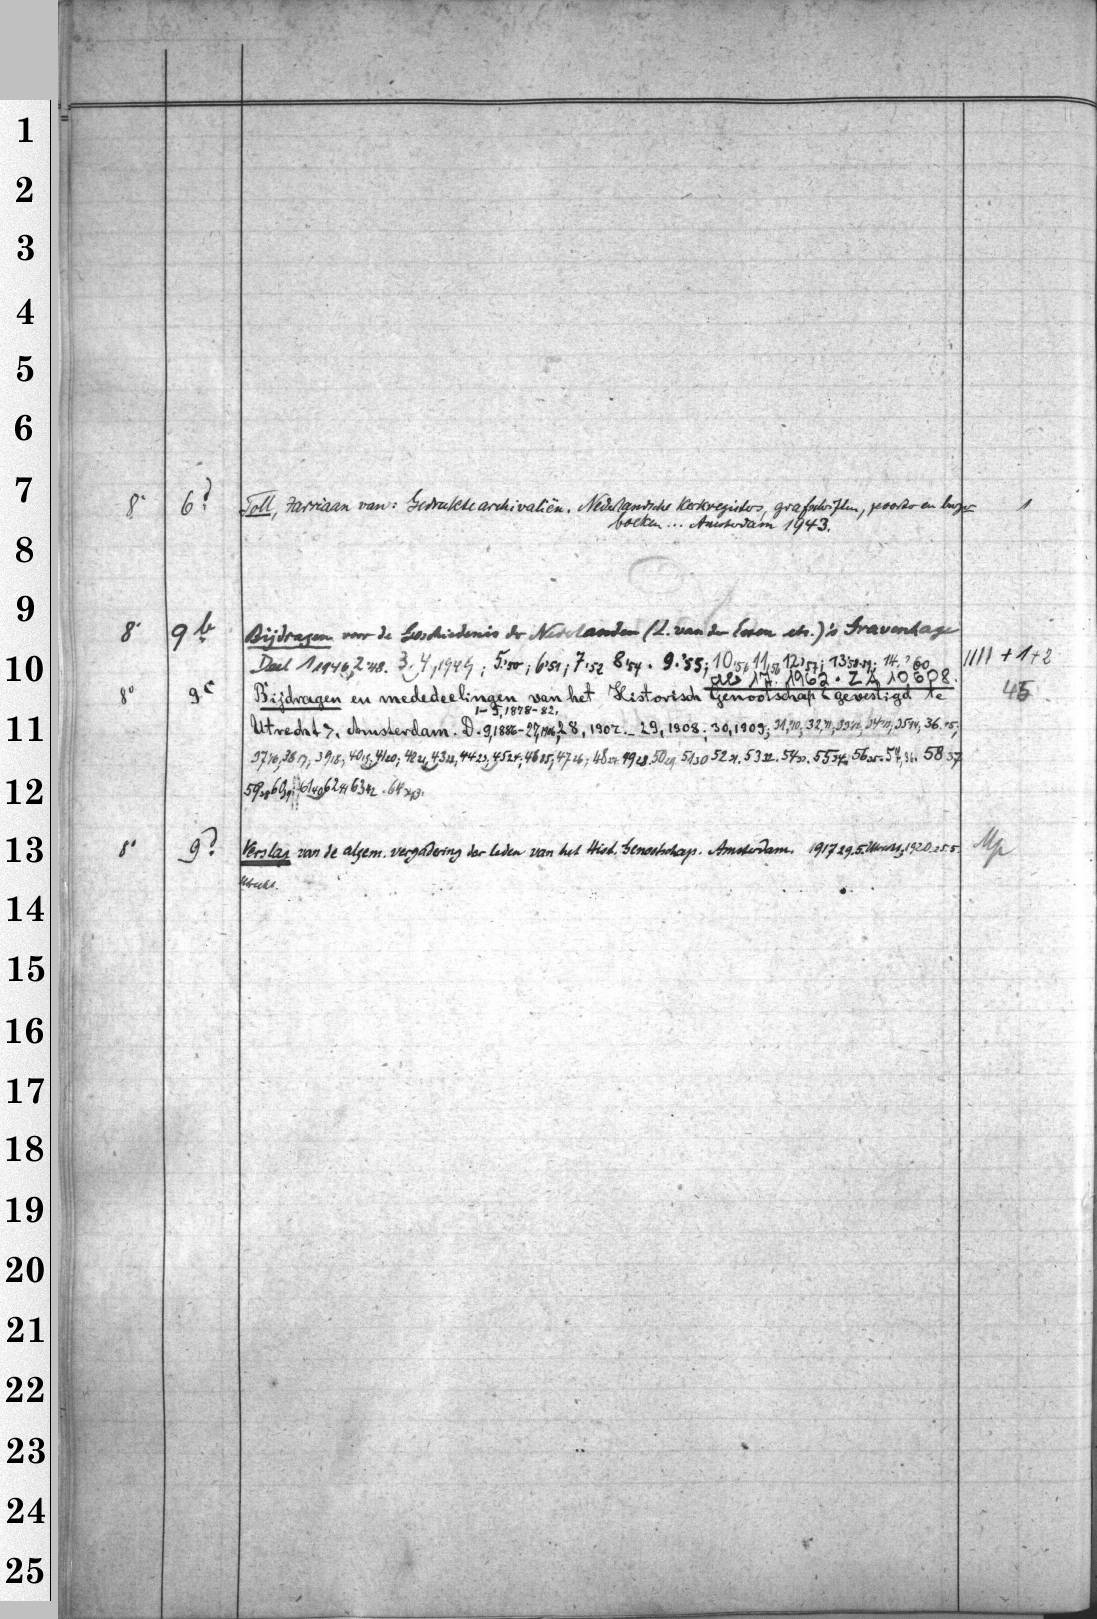 1
2
3
4
5
6
7
8° 6? Toll, Farriaan van: Gedrukte archivaliën. Nederlandsche Kerkregisters, grafschriften, poorter en burger- 1
boeken... Amsterdam 1943.
8
9
8° 9 b Bijdragen voor de Geschiedenis der Nederlanden (L. van der Essen etc.) 's Gravenhage
10
Deel 1 1946, 2 '48. 3. 4, 1949; 5 '50; 6 '51; 7 '52 8 '54. 9. '55; 10 '56 11 '56 12 '57; 13 58-59; 14. '60 1111 + 1 + 2
ab 17. 1962. ZA 10608.
8° 9 c Bijdragen en mededeelingen van het Historisch Genootschap gevestigd te 45
1-5, 1878-82.
11
Utrecht>. Amsterdam. D. 9, 1886-27, 1906, 28, 1907. _ 29, 1908. 30, 1909; 31, 10, 32, 11, 33 12, 34 13, 35 14, 36. 15,
37 16, 38 17, 39 18, 40 19, 41 20, 42 21, 43 22, 44 23, 45 24, 46 25, 47 26, 48 27 49 28. 50 29 51 30 52 31. 53 32. 54 33. 55 34. 56 35. 57. 36. 58 37
12
59 38 60 39 61 40 62 41 63 42. 64 43.
13
8° 9? Verslag van de algem. vergadering der leden van het Hist. Genootschap. Amsterdam. 1917 29.5. Utrecht, 1920. 25.5
Utrecht.
14
15
16
17
18
19
20
21
22
23
24
25